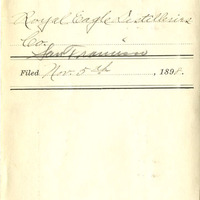 Royal Eagle Distilleries
Co.
San Francisco
Filed Nov. 5th, 1898.